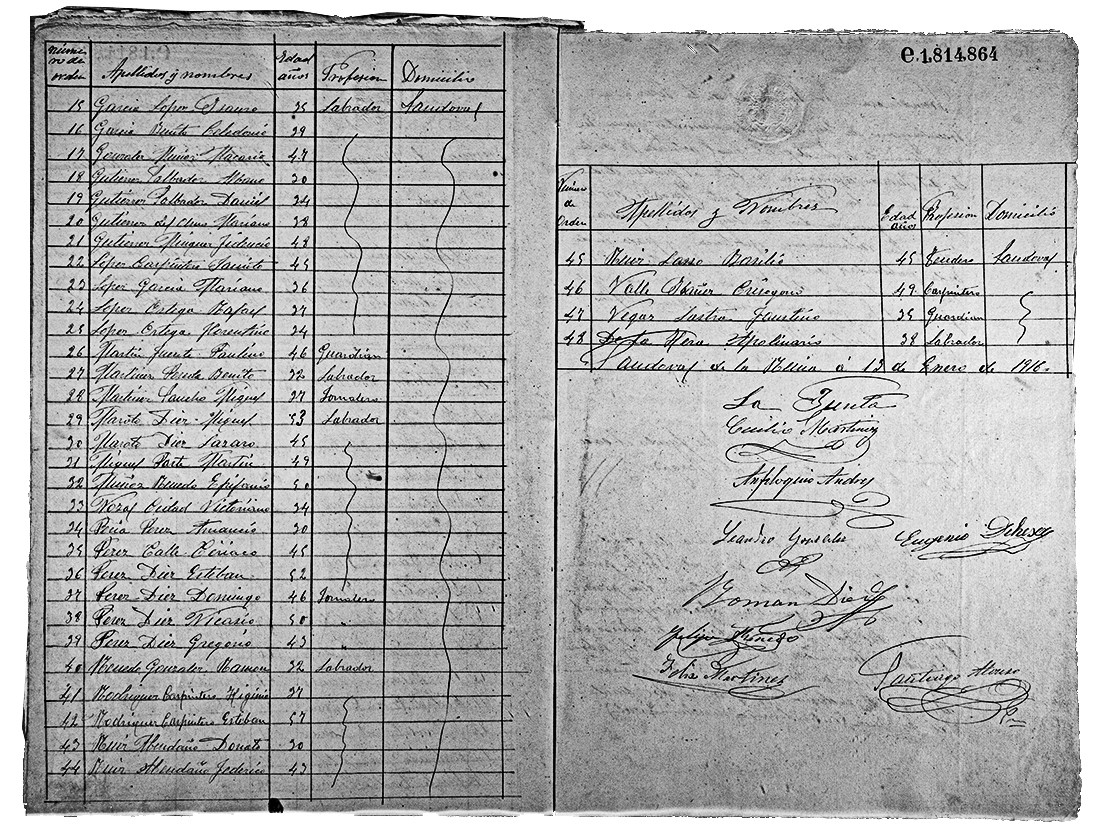 Número de orden Apellidos y nombres Edad años Profesion Domicilio
15 Garcia Lopez Isauro 35 Labrador Sandoval
16 Garcia Benito Celedonio 39
17 Gonzalez Muñoz Macario 47
18 Gutierrez Salbador Albano 30
19 Gutierrez Salbador Daniel 34
20 Gutierrez del Olmo Mariano 38
21 Gutierrez Minguez Fidencio 48
22 Lopez Carpintero Jacinto 45
23 Lopez Garcia Mariano 36
24 Lopez Ortega Rafael 37
25 Lopez Ortega Florentino 34
26 Martin Fuente Paulino 46 Guardian
27 Martinez Benito 32 Labrador
28 Martinez Sancho Miguel 37 Jornalero
29 Maroto Diez Miguel 53 Labrador
30 Maroto Diez Lazaro 45
31 Miguel Parte Martin 49
32 Muñoz Renedo Epifanio 50
33 Cidad Victoriano 34
34 Peria Perez Amancio 30
35 Perez Calle Ciriaco 45
36 Perez Diez Esteban 52
37 Perez Diez Domingo 46 Jornalero
38 Perez Diez Nicasio 50 "
39 Perez Diez Gregorio 43 "
40 Renedo Gonzalez Ramon 32 Labrador
41 Rodriguez Carpintero Higinio 37
42 Rodriguez Carpintero Esteban 57
43 Ruiz Abendaño Donato 30
44 Ruiz Abendaño Federico 43
C.1.814.864
Número de Orden Apellidos y Nombres Edad años Profesion Domicilio
45 Ruiz Lasso Basilio 45 Tendero Sandoval
46 Valle Ibañez Crisogono 49 Carpintero
47 Vegas Lastra Faustino 35 Guardian
48 De la Hera Apolinario 38 Labrador
Sandoval de la Reina á 12 de Enero de 1916.
La Junta
Cecilio Martinez
Anfiloquio Andres
Leandro Gonzalez
Eugenio Dehesa
Roman Diez
Felipe
Felix Martinez
Santiago Alonso